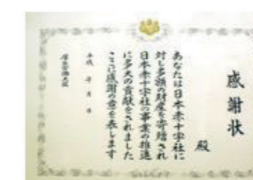 感謝状
殿
あなたは日本赤十字社に
対し多額の財産を寄贈され
日本赤十字社の事業の推進
に多大の貢献をされました
ここに感謝の意を表します
平成 年 月 日
厚生労働大臣